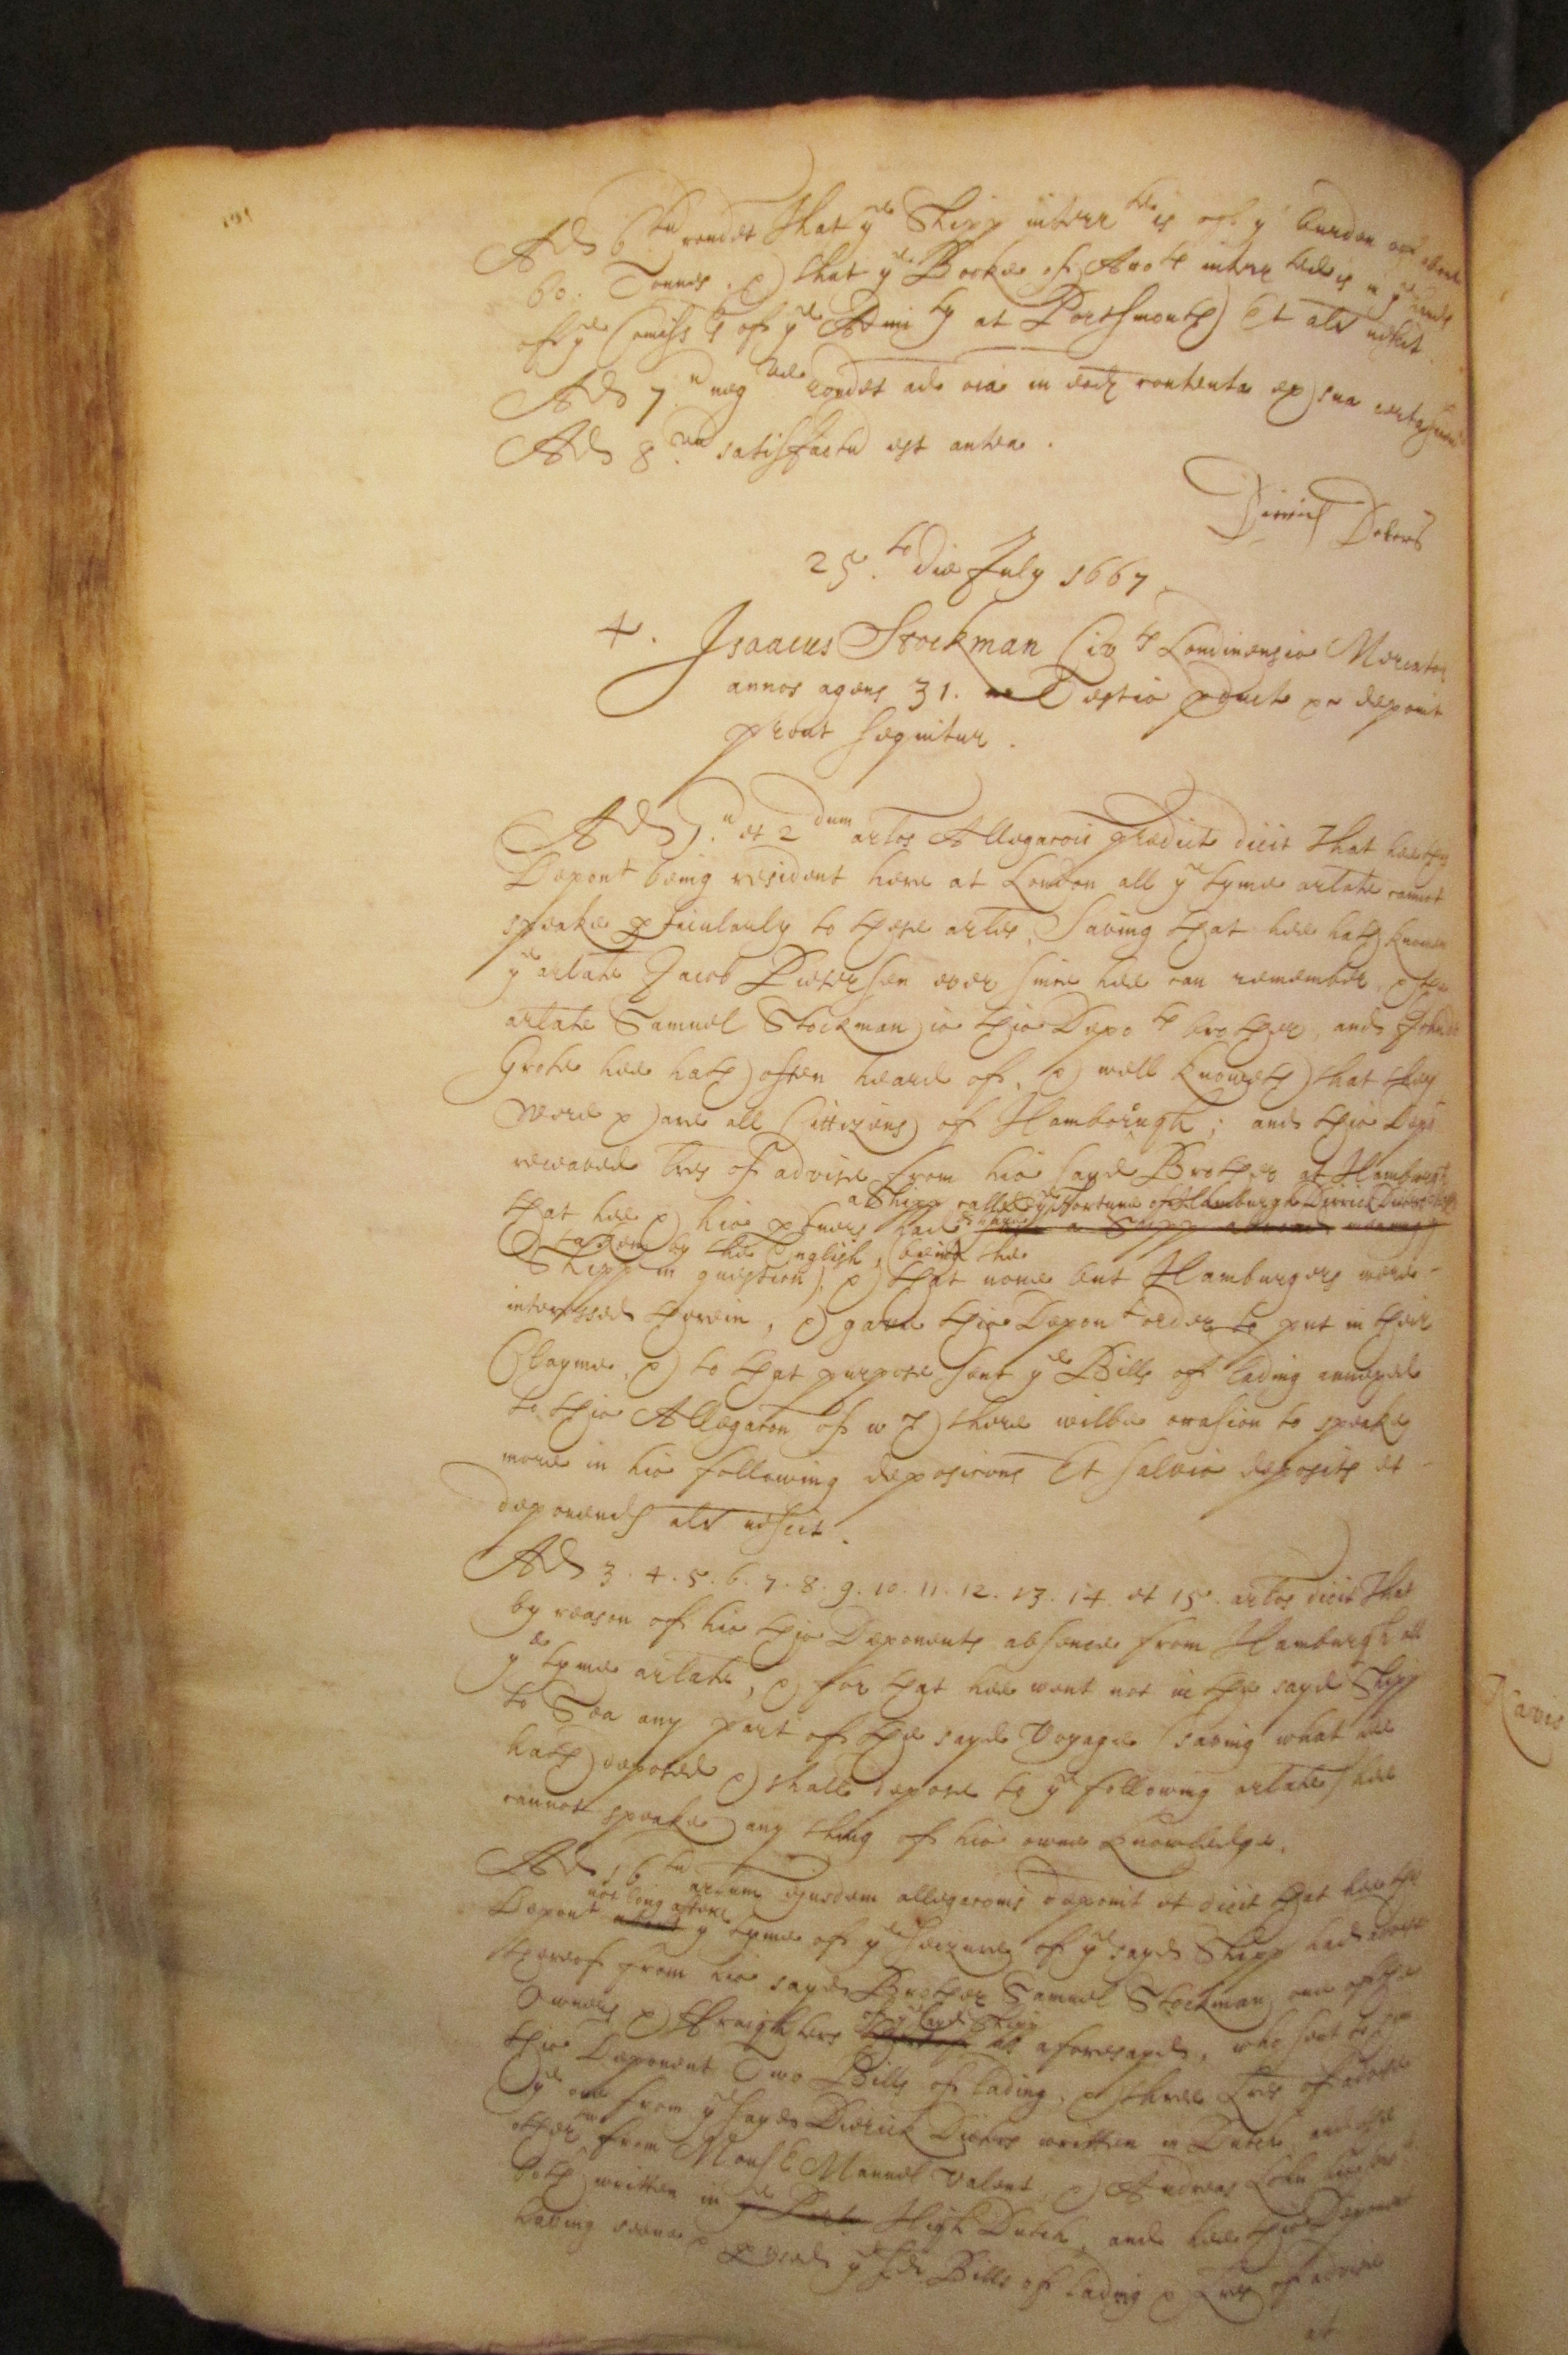 Ad 6.tu rondet That ye Shipp interr.te is of ye burden of about
60. Tonnes. & that ye Booke of Acots interr.te is in ye hands
of ye Comiss.rs of ye Admi.ty at Portsmouth Et alr nescit.
Ad 7.u neg.ve rondet ad oia in eodz contenta ex sua certa scientia
Ad 8.vu satisfactu est antea.
Dirrick Deters
25.to die July 1667.
4. Isaacus Stockman Civ.ts Londinensis Mercator
annos agens 31. Testis pduct &c deponit
prout sequitur.
Ad 1.u et 2.dum arlos Allegarois predict dicit That hee this
Depon.t being resident here at London all ye tyme arlate cannot
speake pticularly to these arles, Saving that hee hath knowne
ye arlate Jacob Pietersen ever since hee can remember, & the
arlate Samuel Stockman is this Depo.ts brother, and John de
Grote hee hath often heard of, & well knoweth that they
were & are all Cittizens of Hambourgh; and this Dept
received lres of advise from his sayd Brother at Hamburgh
a Shipp called ye Fortune of Hamburgh Dirrick Dieters
that hee & his ptners had a Shipp
taken by the English, being the
Shipp in question, & that none but Hamburgers were
interessed therein, & gave this Depon.t order to put in their
Clayme, & to that purpose sent ye Bills of lading annexed
to this Allegaton of wch there wilbe occasion to speake
more in his following deposicons Et salvis deposits et
deponends alr nescit.
Ad 3. 4. 5. 6. 7. 8. 9. 10. 11. 12. 13. 14. et 15. arlos dicit That
by reason of his this Deponents absence from Hamburgh all
ye tyme arlate, & for that hee went not in the sayd Shipp
to Sea any part of the sayd Voyage (saving what hee
hath deposed & shall depose to ye following arlate) hee
cannot speake any thing of his owne knowledge.
Ad 16.tu arlum ejusdem allegaronis deponit et dicit that hee the
not long after
Depont about ye tyme of ye seizure of ye sayd Shipp had advise
thereof from his sayd Brother Samuel Stockman one of the
of ye sayd Shipp
Owners & Fraighters as aforesayd, who sent to him
this Deponent Two Bills of lading, & three Lres of advise
ye one from ye sayd Dierick Dieters written in Dutch and the
other from Mons.r Manuel Valent, & Andreas
both written in ye High Dutch, and hee this Deponent
having seene & pused ye sd Bills of lading & Lres of advise
at